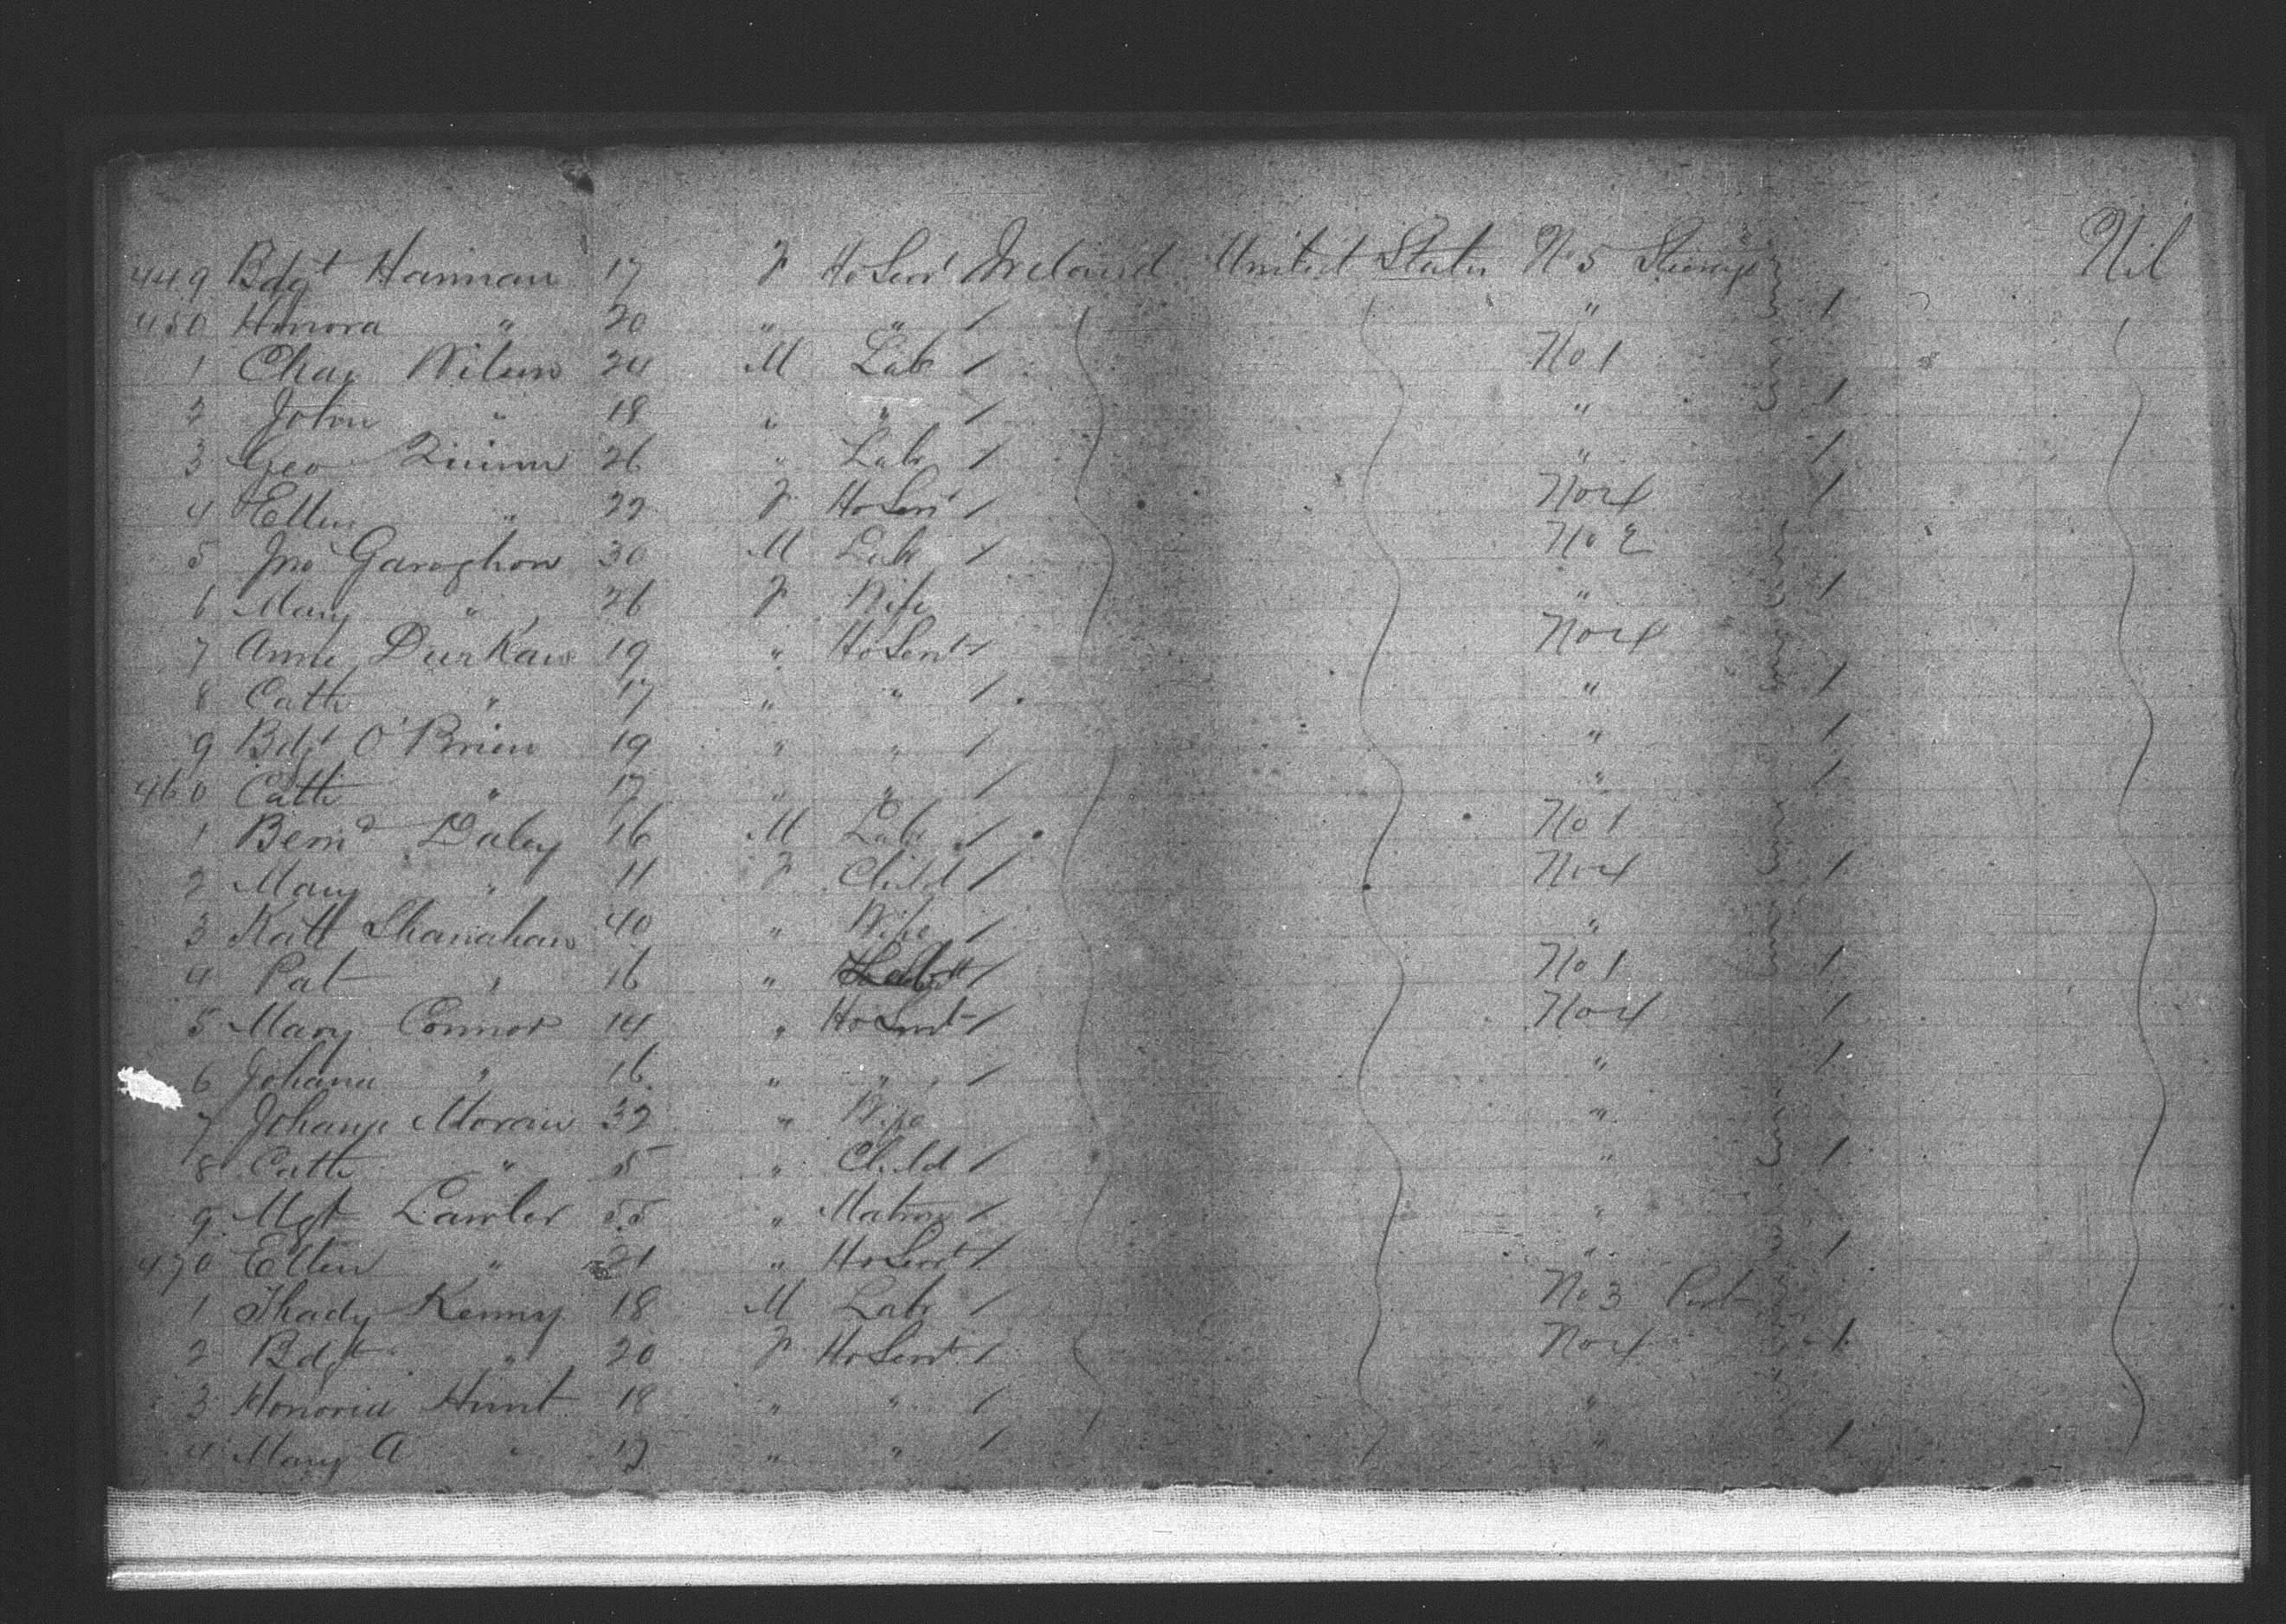 449 Bdgt Hannan 17 F HoServt Ireland United States No 5 Steerage Nil
450 Honora " 20 " " / " 1
1 Chas Wilson 24 M Lab / No 1
2 John " 18 " " / " 1
3 Geo Quinn 26 " Labr / " 1
4 Ellen " 22 F HoServt / No 4 1
5 Jno Garoghon 30 M Labr / No 2
6 Mary " 26 F Wife " 1
7 Anne Durkan 19 " HoServt / No 4
8 Cath " 17 " " / " 1
9 Bdgt O'Brien 19 " " / " 1
460 Cath " 17 " " / " 1
1 Bernd Daley 16 M Labr / No 1
2 Mary " 11 F Child / No 4 1
3 Katt Shanahan 40 " Wife / "
4 Pat " 16 " / No 1 1
5 Mary Connor 14 " HoServt / No 4 1
6 Johana " 16 " " / " 1
7 Moran 32 " Wife "
8 Cath " 5 " Child / " 1
9 Mgt Lawler 55 " Matron / "
470 Ellen " 21 " HoServt / " 1
1 Thady Kenny 18 M Labr / No 3
2 Bdgt " 20 F HoServt / No 4 1
3 Honoria Hunt 18 " " / "
4 Mary A " 17 " " / " 1